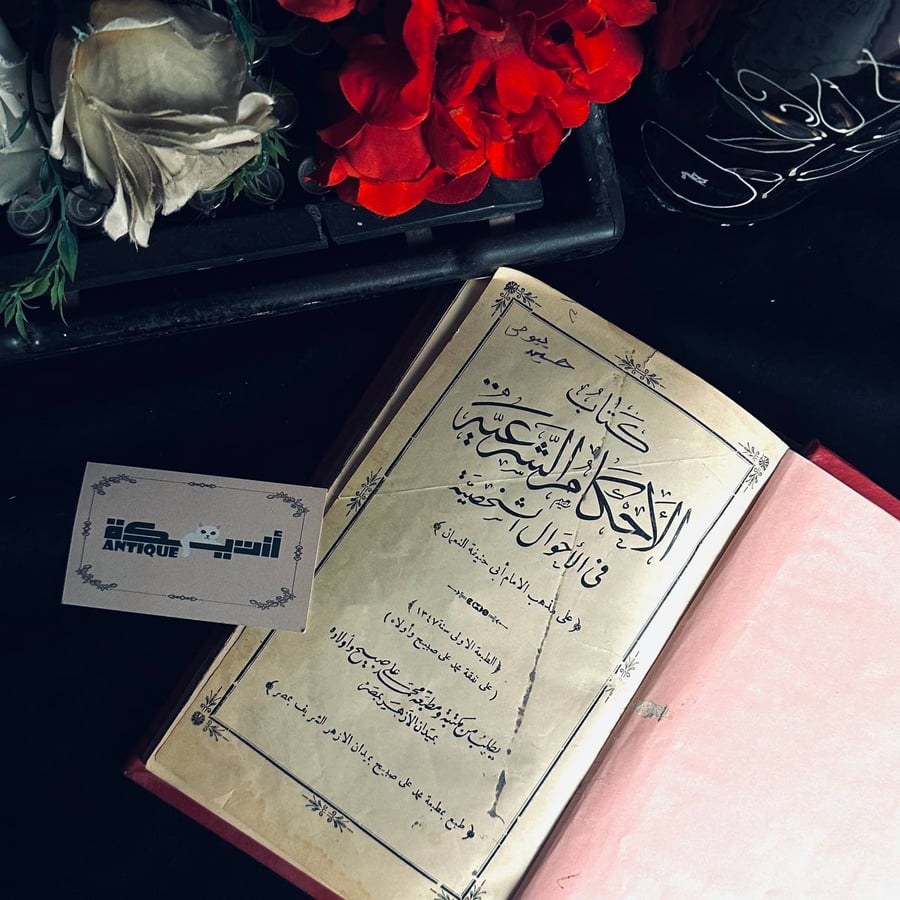 كتاب
الأحكام الشرعية
في الأحوال الشخصية
﴿على مذهب الامام أبى حنيفة النعمان﴾
﴿الطبعة الاولى سنة ١٣٤٧﴾
(على نفقة محمد على صبيح وأولاده)
يطلب من مكتبة ومطبعة محمد على صبيح وأولاده
بميدان الأزهر بمصر
﴿طبع بمطبعة محمد على صبيح بميدان الازهر الشريف بمصر﴾
أنتيكة
ANTIQUE